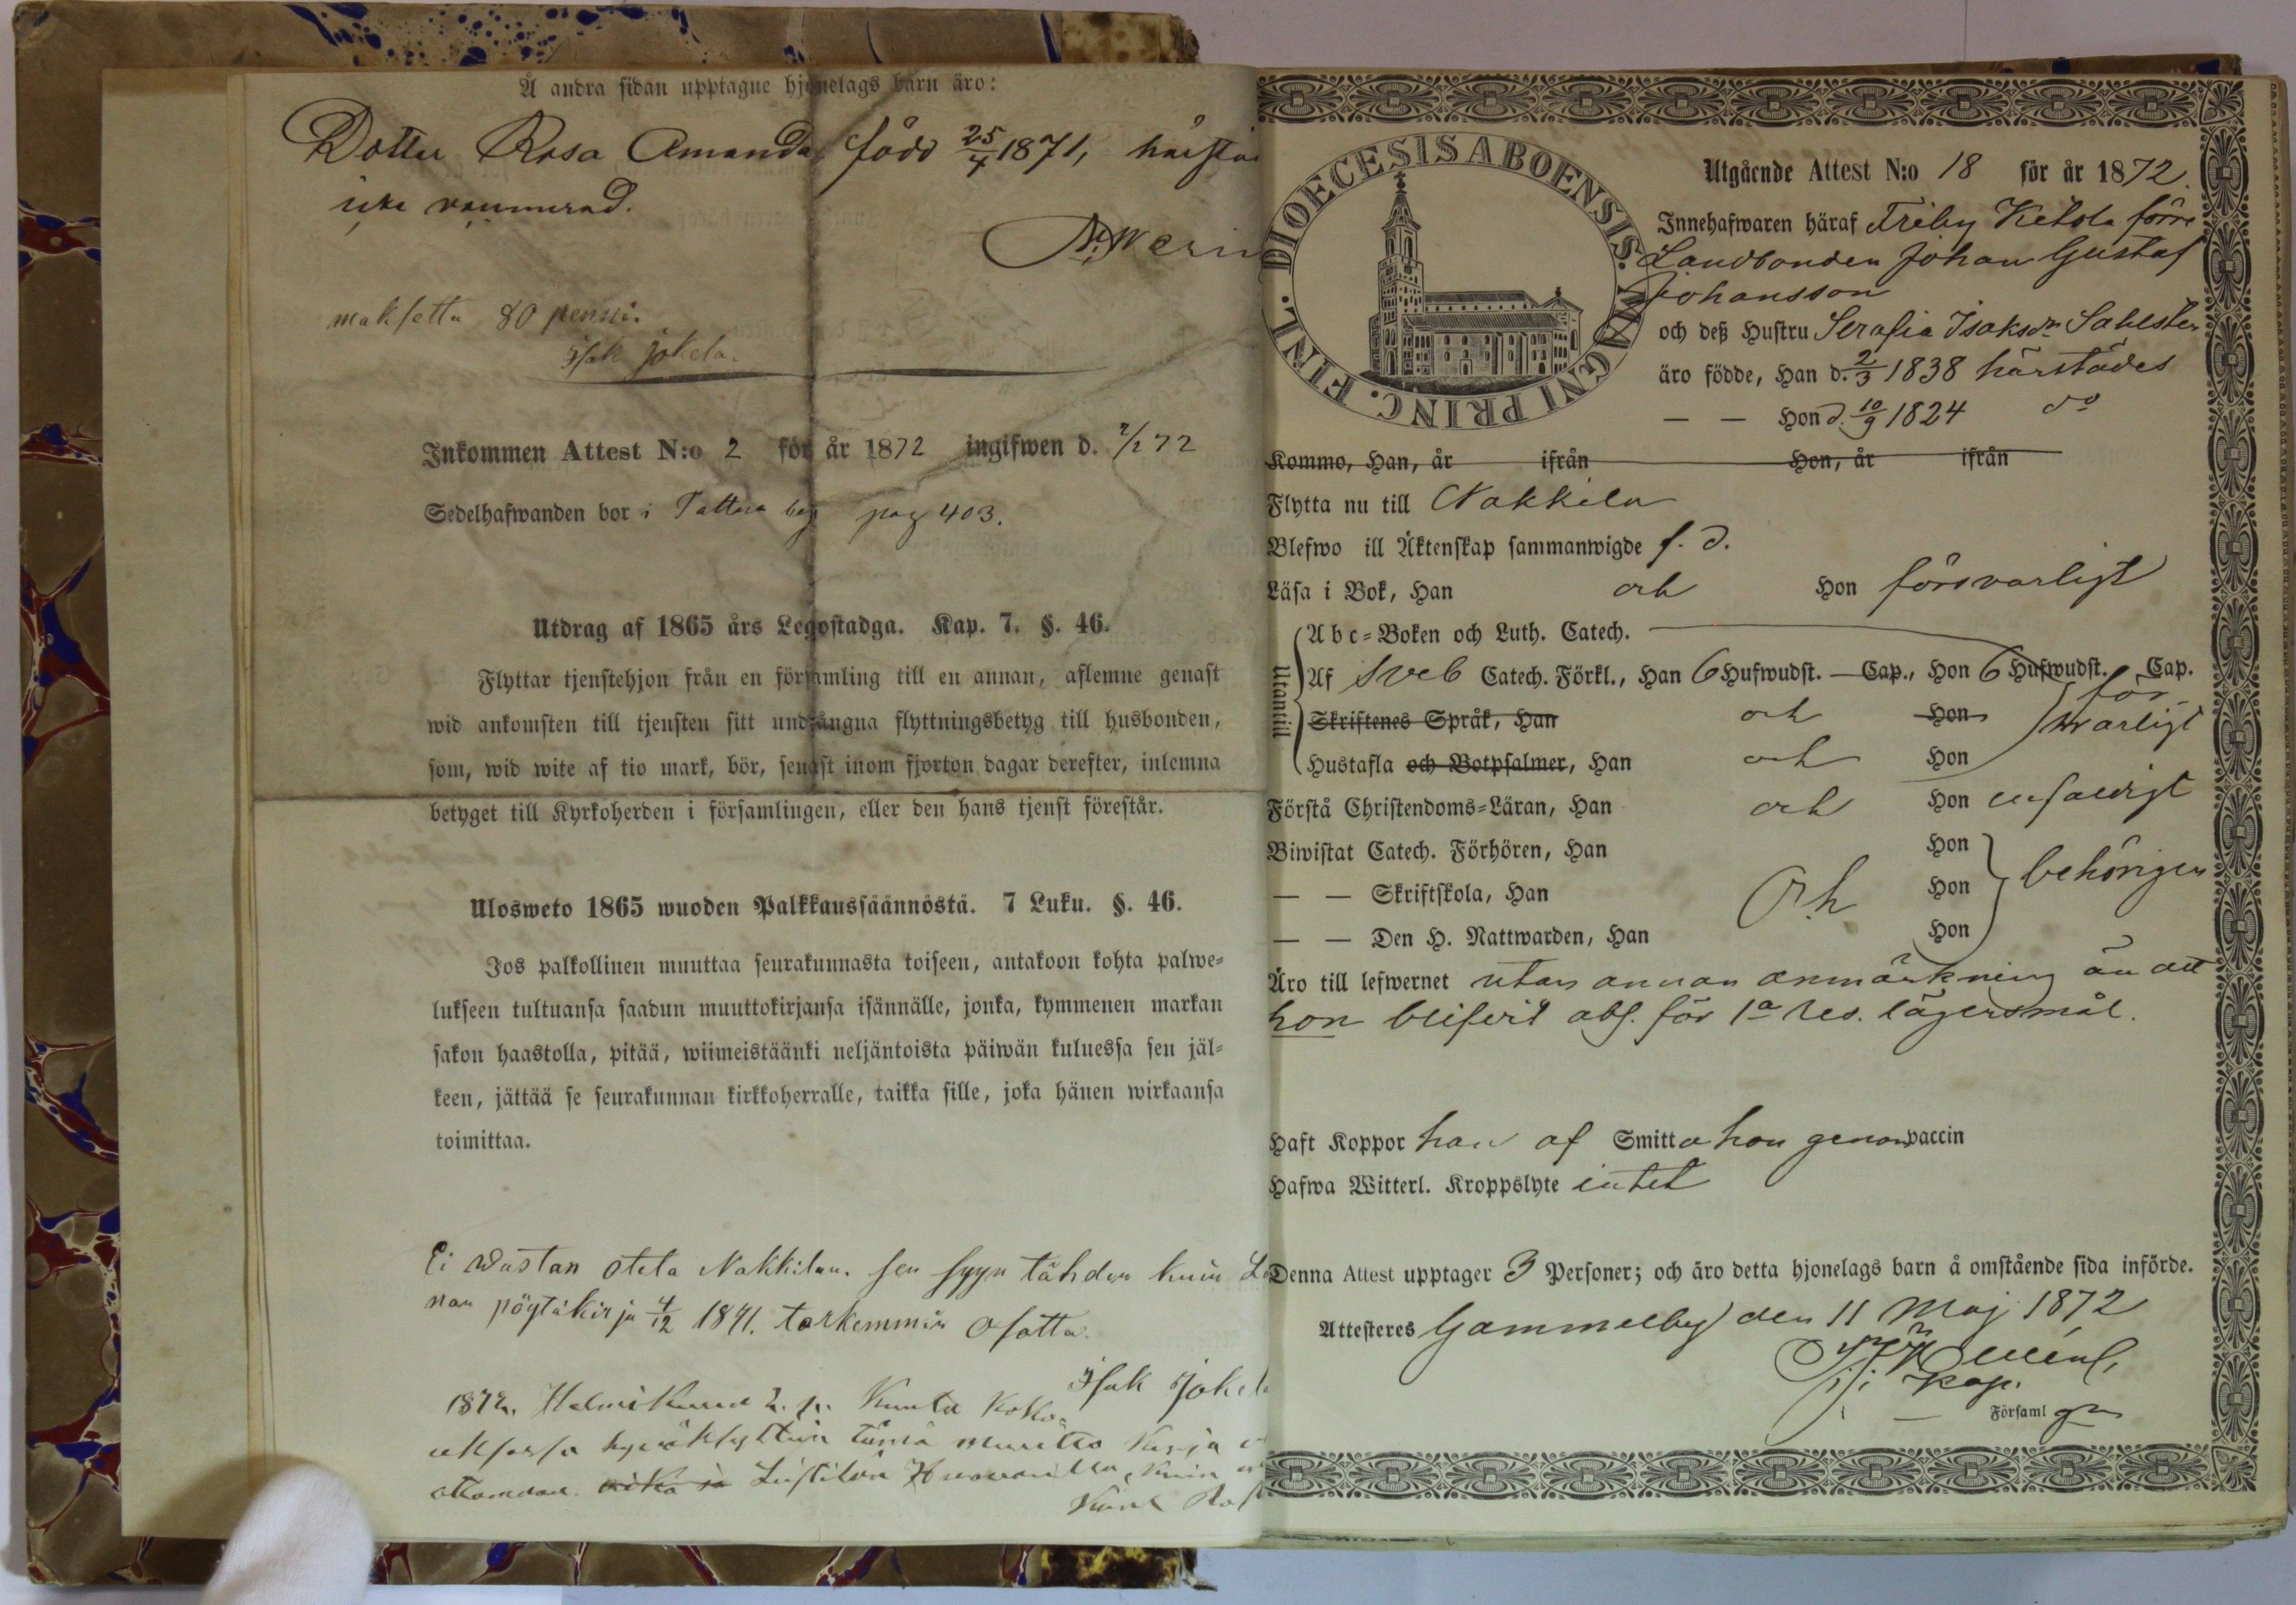 Å andra sidan upptagne hjonelags barn äro:
Dotter Rosa Amanda, född 25/4 1871,
icke vaccinerad.
maksettu 80 penni.
Isak Jokela.
Inkommen Attest N:o 2 för år 1872 ingifwen d. 2/2 72
Sedelhafwanden bor i Tattara by pag 403.
Utdrag af 1865 års Legostadga. Kap. 7. §. 46.
Flyttar tjenstehjon från en församling till en annan, aflemne genast
wid ankomsten till tjensten sitt undfångna flyttningsbetyg till husbonden,
som, wid wite af tio mark, bör, senast inom fjorton dagar derefter, inlemna
betyget till Kyrkoherden i församlingen, eller den hans tjenst förestår.
Ulosweto 1865 wuoden Palkkaussäännöstä. 7 Luku. §. 46.
Jos palkollinen muuttaa seurakunnasta toiseen, antakoon kohta palwe-
lukseen tultuansa saadun muuttokirjansa isännälle, jonka, kymmenen markan
sakon haastolla, pitää, wiimeistäänki neljäntoista päiwän kuluessa sen jäl-
keen, jättää se seurakunnan kirkkoherralle, taikka sille, joka hänen wirkaansa
toimittaa.
Ei wastan oteta Nakkilan. sen syyn tähden kuin
nan pöytäkirja 4/12 1871. tarkemmin osotta.
Isak Jokel
1872. Helmikuun 2. p. Kunta Koko-
uksessa hywäksyttin tämä muutto Kirja
DIOECESIS ABOENSIS. MAGNI PRINC. FINL.
Utgående Attest N:o 18 för år 1872.
Innehafwaren häraf Friby Ketola förre
Landbonden Johan Gustaf
Johansson
och deß Hustru Serafia Isaksdr Sahlsten
äro födde, Han d. 2/3 1838 härstädes
— — Hon d. 10/9 1824 do
Kommo, Han, år ifrån Hon, år ifrån
Flytta nu till Nakkila
Blefwo ill Äktenskap sammanwigde f. d.
Läsa i Bok, Han och Hon försvarligt
Utantill
Abc-Boken och Luth. Catech.
Af Sveb Catech. Förkl., Han 6 Hufwudst. — Cap., Hon 6 Hufwudst. Cap.
för
Skriftenes Språk, Han och Hon
warligt
Hustafla och Botpsalmer, Han och Hon
Förstå Christendoms-Läran, Han och Hon enfaldigt
Biwistat Catech. Förhören, Han Hon
— — Skriftskola, Han och Hon behörigen
— — Den H. Nattwarden, Han Hon
Äro till lefwernet utan annan anmärkning än att
hon blifvit abs. för 1a res. lägersmål.
Haft Koppor han af Smitta hon genom vaccin
Hafwa Witterl. Kroppslyte intet
Denna Attest upptager 3 Personer; och äro detta hjonelags barn å omstående sida införde.
Attesteres Gammelby den 11 Maj 1872
Kap.
Församl